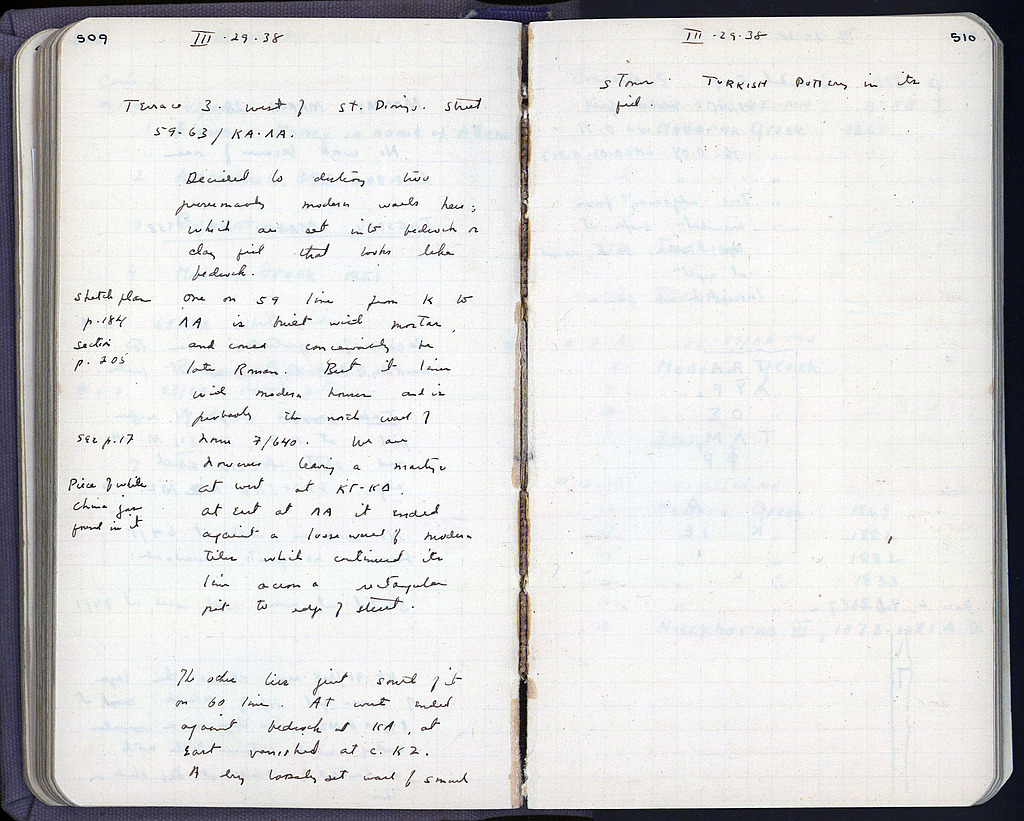 509
III · 29 · 38
Terrace 3. west of St. Dionys. street
59-63/ΚΑ-ΛΑ.
Decided to destroy two
presumably modern walls here;
which are set into bedrock or
clay fill that looks like
bedrock.
sketch plan
p. 184
section
p. 205
One on 59 line from K to
ΛΑ is built with mortar,
and could conceivably be
late Roman. But it lines
with modern houses and is
probably the north wall of
see p. 17
house 7/640. We are
however leaving a
at west at ΚΓ-ΚΔ.
Piece of white
china
found in it
at East at ΛΑ it ended
against a loose wall of modern
tiles which continued its
line across a rectangular
pit to edge of street.
The other lies just south of it
on 60 line. At west ended
against bedrock at ΚΑ, at
East vanished at c. ΚΖ.
A very loosely set wall of small
III · 29 · 38
510
stones. TURKISH Pottery in its
fill.